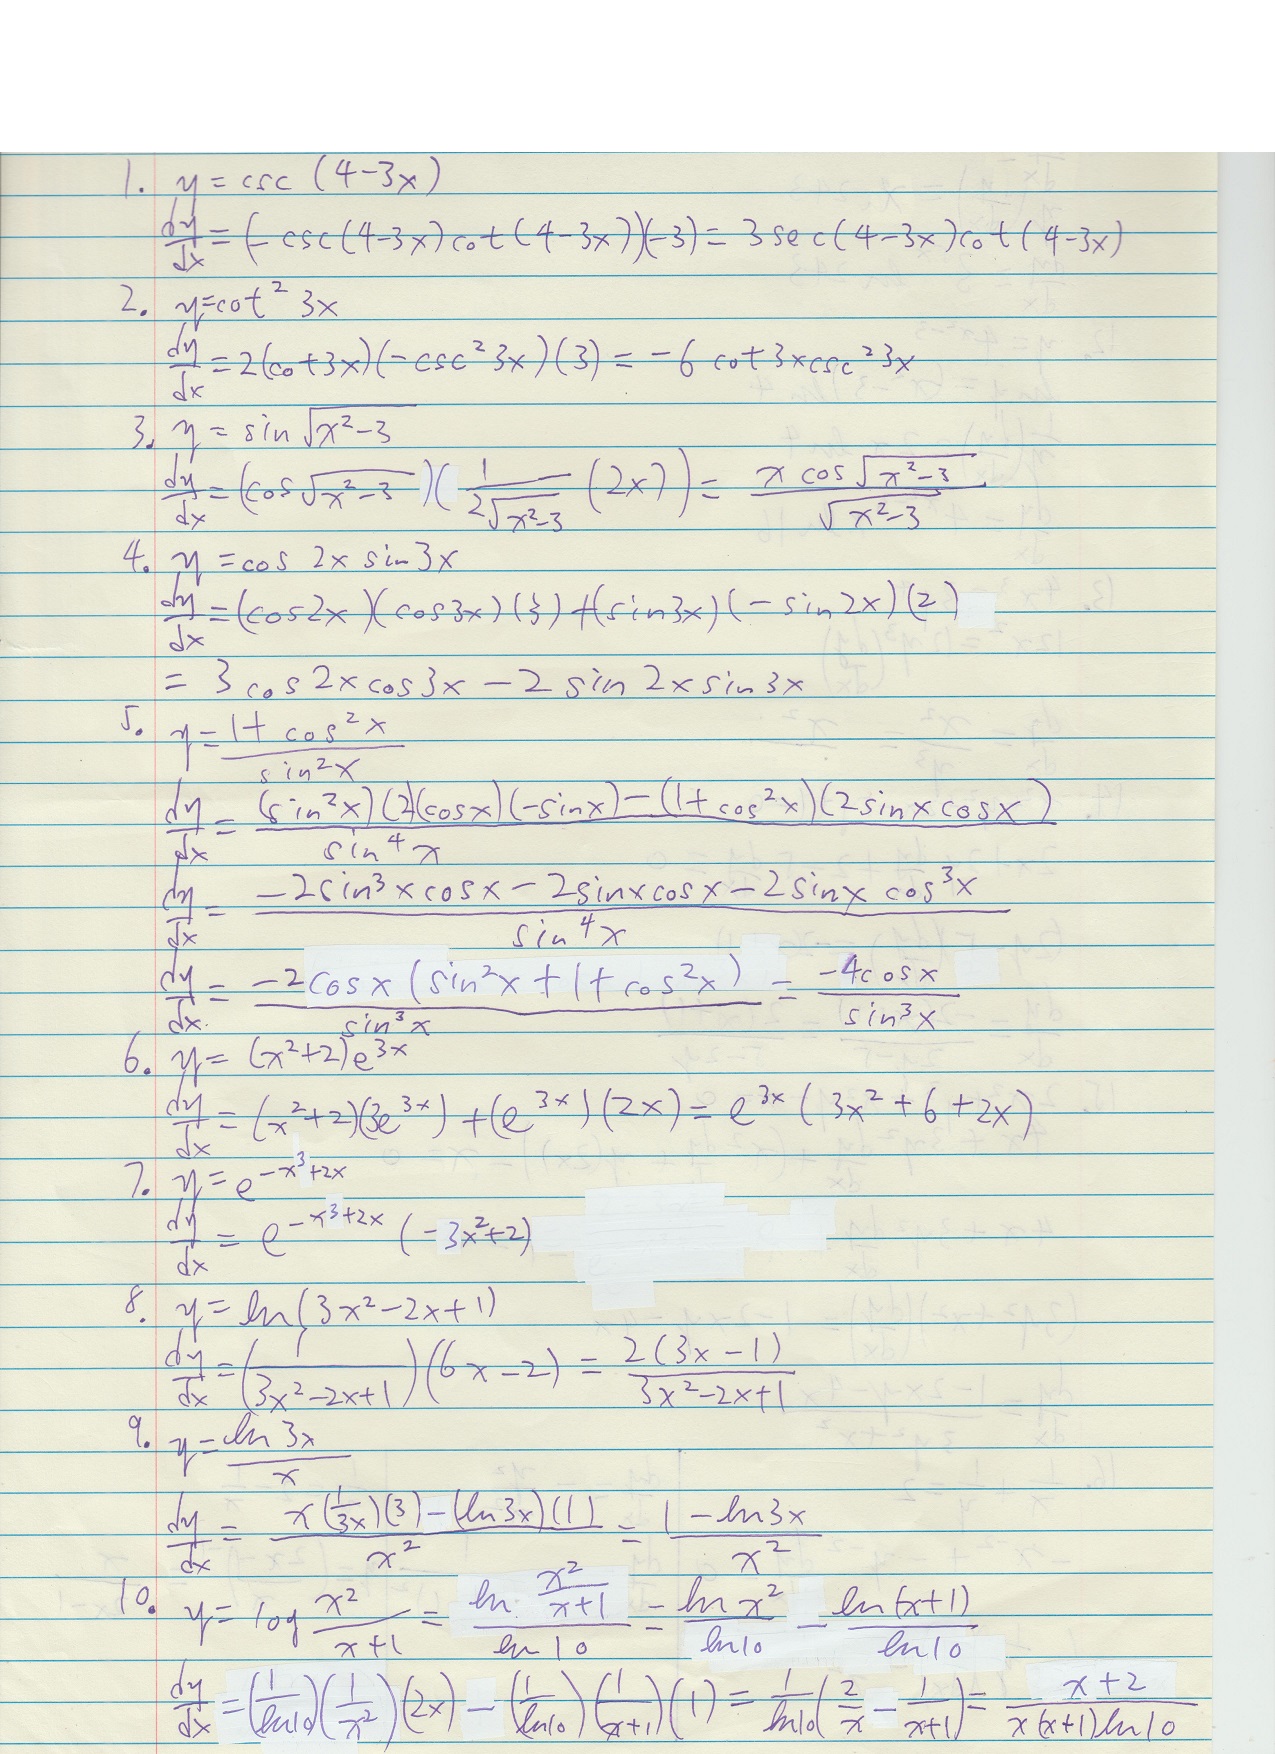 1. y = csc (4-3x)
dy/dx = (-csc(4-3x)cot(4-3x))(-3) = 3sec(4-3x)cot(4-3x)
2. y=cot² 3x
dy/dx = 2(cot3x)(-csc² 3x)(3) = -6 cot3xcsc²3x
3. y = sin √(x²-3)
dy/dx = (cos√(x²-3))(1/(2√(x²-3)) (2x)) = x cos√(x²-3) / √(x²-3)
4. y = cos 2x sin3x
dy/dx = (cos2x)(cos3x)(3) + (sin3x)(-sin2x)(2)
= 3cos2xcos3x - 2 sin2xsin3x
5. y = (1+ cos²x) / sin²x
dy/dx = ((sin²x)(2)(cosx)(-sinx) - (1+cos²x)(2sinxcosx)) / sin⁴x
dy/dx = (-2sin³xcosx - 2sinxcosx - 2sinx cos³x) / sin⁴x
dy/dx = -2cosx(sin²x + 1 + cos²x) / sin³x = -4cosx / sin³x
6. y = (x²+2)e^(3x)
dy/dx = (x²+2)(3e^(3x)) + (e^(3x))(2x) = e^(3x)(3x²+6+2x)
7. y = e^(-x³+2x)
dy/dx = e^(-x³+2x) (-3x²+2)
8. y = ln(3x²-2x+1)
dy/dx = (1/(3x²-2x+1))(6x-2) = 2(3x-1) / (3x²-2x+1)
9. y = ln 3x / x
dy/dx = (x(1/3x)(3) - (ln3x)(1)) / x² = (1-ln3x) / x²
10. y = log x²/(x+1) = ln (x²/(x+1)) / ln10 = ln x² / ln10 - ln(x+1) / ln10
dy/dx = (1/ln10)(1/x²)(2x) - (1/ln10)(1/(x+1))(1) = 1/ln10 (2/x - 1/(x+1)) = (x+2) / (x(x+1)ln10)